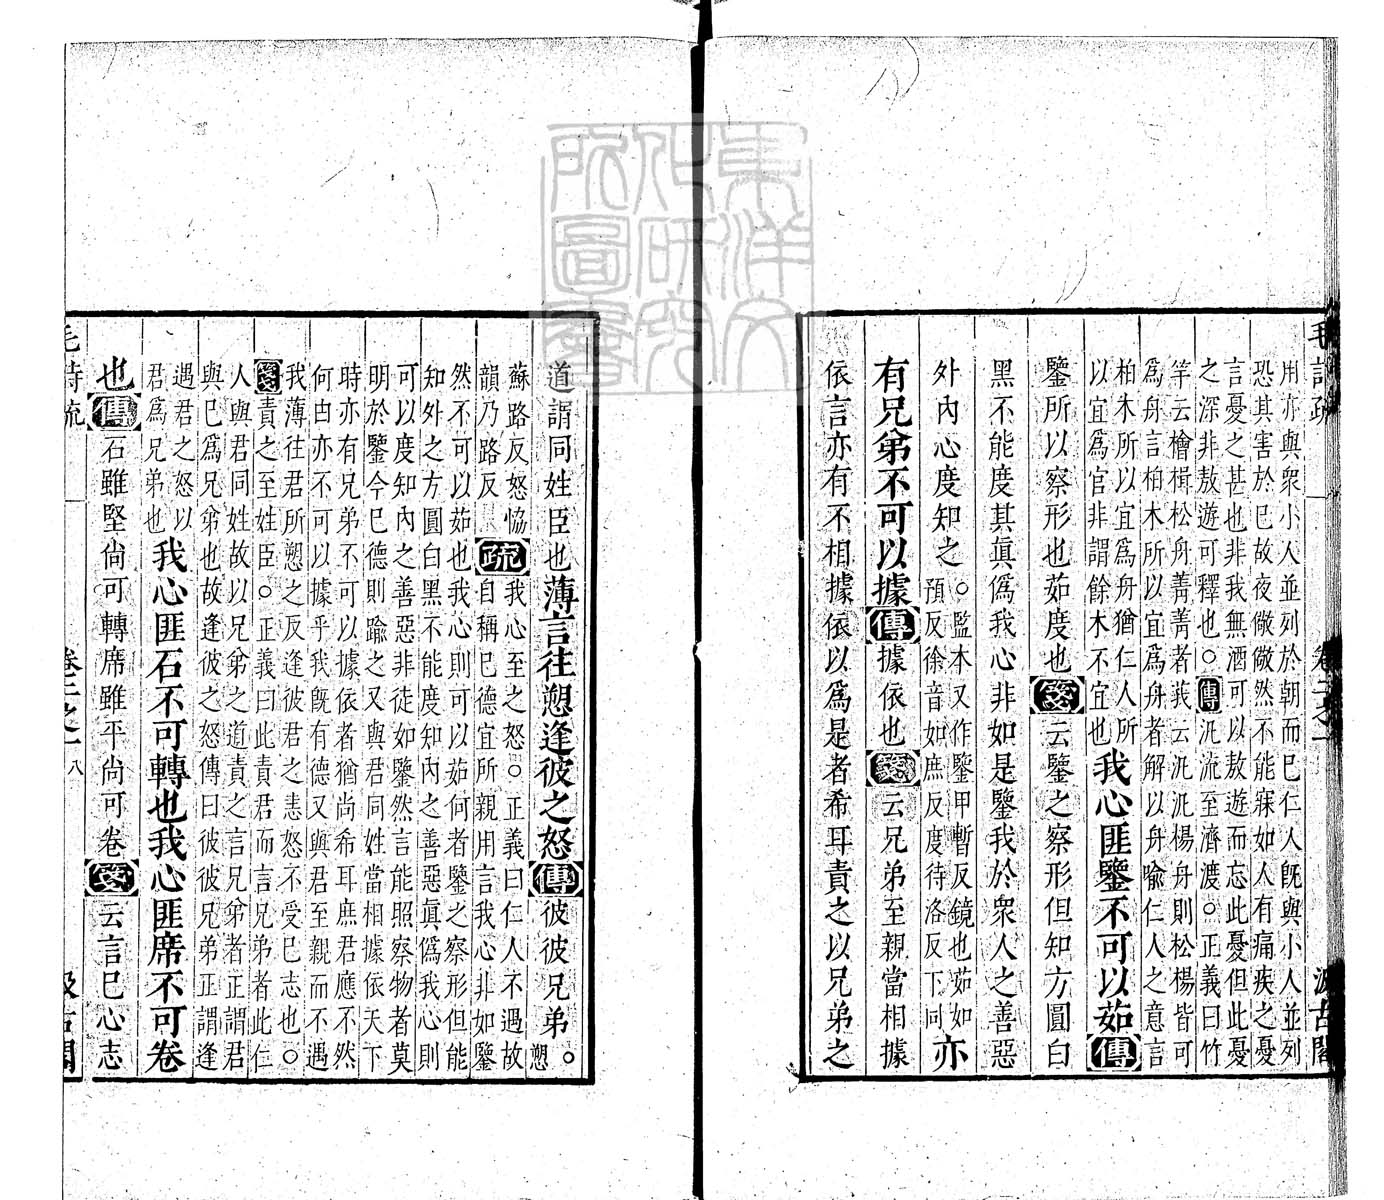 用亦與衆小人並列於朝而已仁人旣與小人並列
恐其害於已故夜儆儆然不能寐如人有痛疾之憂
言憂之甚也非我無酒可以敖遊而忘此憂但此憂
之深非敖遊可釋也○傳汎流至濟渡○正義曰竹
竿云檜楫松舟菁菁者莪云汎汎楊舟則松楊皆可
爲舟言柏木所以宜爲舟者解以舟喻仁人之意言
柏木所以宜爲舟猶仁人所
以宜爲官非謂餘木不宜也
我心匪鑒不可以茹傳
鑒所以察形也茹度也箋云鑒之察形但知方圓白
黑不能度其眞僞我心非如是鑒我於衆人之善惡
外內心度知之
○監本又作鑒甲暫反鏡也茹如
預反徐音如庶反度待洛反下同
亦
有兄弟不可以據傳據依也箋云兄弟至親當相據
依言亦有不相據依以爲是者希耳責之以兄弟之
毛詩疏 卷二之一 汲古閣
道謂同姓臣也薄言往愬逢彼之怒傳彼彼兄弟○愬
蘇路反怒恊
韻乃路反
疏
我心至之怒○正義曰仁人不遇故
自稱已德宜所親用言我心非如鑒
然不可以茹也我心則可以茹何者鑒之察形但能
知外之方圓白黑不能度知內之善惡眞僞我心則
可以度知內之善惡非徒如鑒然言能照察物者莫
明於鑒今已德則踰之又與君同姓當相據依天下
時亦有兄弟不可以據依者猶尚希耳庶君應不然
何由亦不可以據乎我旣有德又與君至親而不遇
我薄往君所愬之反逢彼君之恚怒不受已志也○
箋責之至姓臣○正義曰此責君而言兄弟者此仁
人與君同姓故以兄弟之道責之言兄弟者正謂君
與已爲兄弟也故逢彼之怒傳曰彼彼兄弟正謂逢
遇君之怒以
君爲兄弟也
我心匪石不可轉也我心匪席不可卷
也傳石雖堅尙可轉席雖平尙可卷箋云言已心志
毛詩疏 卷二之一 八 汲古閣
東洋文化研究所圖書